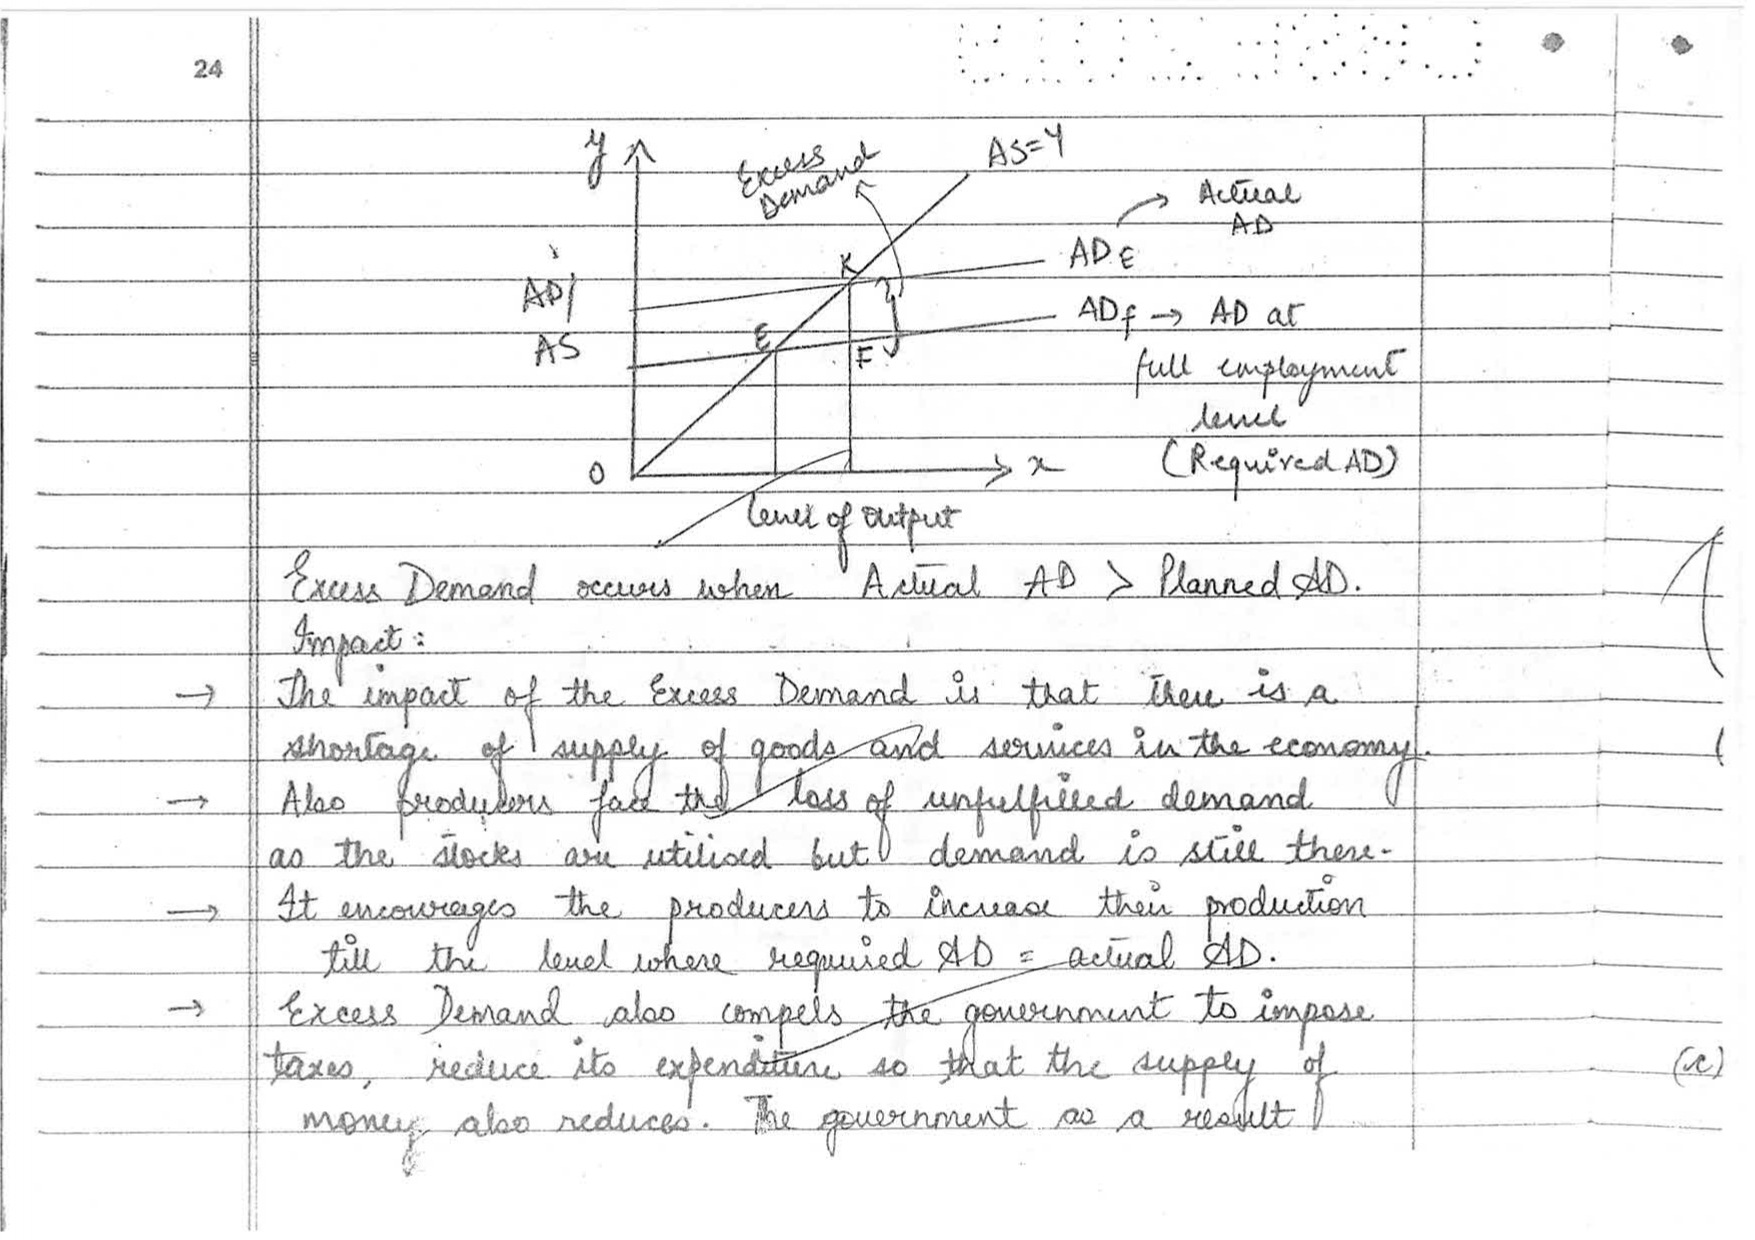 24
y
Excess
Demand
AS=Y
Actual
AD
K
AD E
AD/
AS
AD f → AD at
E
F
full employment
level
(Required AD)
O
x
level of output
Excess Demand occurs when Actual AD > Planned AD.
Impact:
→ The impact of the Excess Demand is that there is a
shortage of supply of goods and services in the economy.
→ Also producers face the loss of unfulfilled demand
as the stocks are utilised but demand is still there.
→ It encourages the producers to increase their production
till the level where required AD = actual AD.
→ Excess Demand also compels the government to impose
taxes, reduce its expenditure so that the supply of
money also reduces. The government as a result